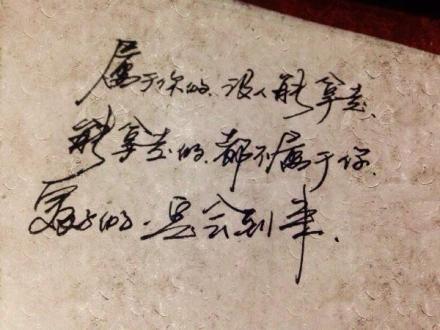 属于你的、没人能拿走、
能拿走的、都不属于你、
更好的、总会到来、